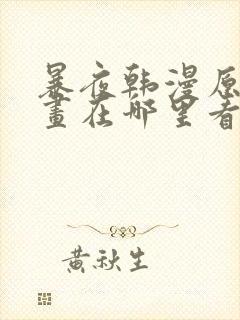 暴夜韩漫原
畫在哪里看
黃秋生